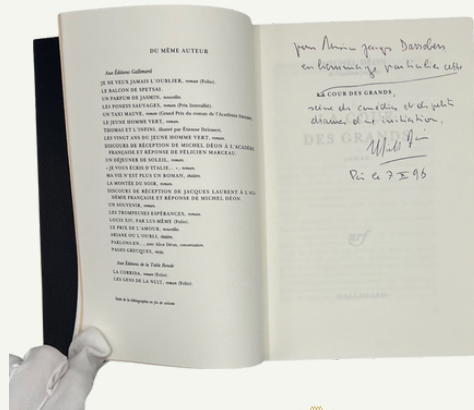 DU MÊME AUTEUR
Aux Éditions Gallimard
JE NE VEUX JAMAIS L'OUBLIER, roman (Folio).
LE BALCON DE SPETSAI.
UN PARFUM DE JASMIN, nouvelles.
LES PONEYS SAUVAGES, roman (Prix Interallié).
UN TAXI MAUVE, roman (Grand Prix du roman de l'Académie
LE JEUNE HOMME VERT, roman.
THOMAS ET L'INFINI, illustré par Étienne Delessert.
LES VINGT ANS DU JEUNE HOMME VERT, roman.
DISCOURS DE RÉCEPTION DE MICHEL DÉON À L'ACADÉ
FRANÇAISE ET RÉPONSE DE FÉLICIEN MARCEAU.
UN DÉJEUNER DE SOLEIL, roman.
« JE VOUS ÉCRIS D'ITALIE... », roman.
MA VIE N'EST PLUS UN ROMAN, théâtre.
LA MONTÉE DU SOIR, roman.
DISCOURS DE RÉCEPTION DE JACQUES LAURENT À L'ACA
DÉMIE FRANÇAISE ET RÉPONSE DE MICHEL DÉON.
UN SOUVENIR, roman.
LES TROMPEUSES ESPÉRANCES, roman.
LOUIS XIV, PAR LUI-MÊME (Folio).
LE PRIX DE L'AMOUR, nouvelles.
ARIANE OU L'OUBLI, théâtre.
PARLONS-EN..., avec Alice Déon, conversation.
PAGES GRECQUES, récits.
Aux Éditions de la Table Ronde
LA CORRIDA, roman (Folio).
LES GENS DE LA NUIT, roman (Folio).
Suite de la bibliographie en fin de volume
pour Monsieur Jacques
en hommage particulier cette
LA COUR DES GRANDS,
des comédies et des petits
drames d'une initiation,
DES GRANDS
roman
Paris le 7 X 96
nrf
GALLIMARD